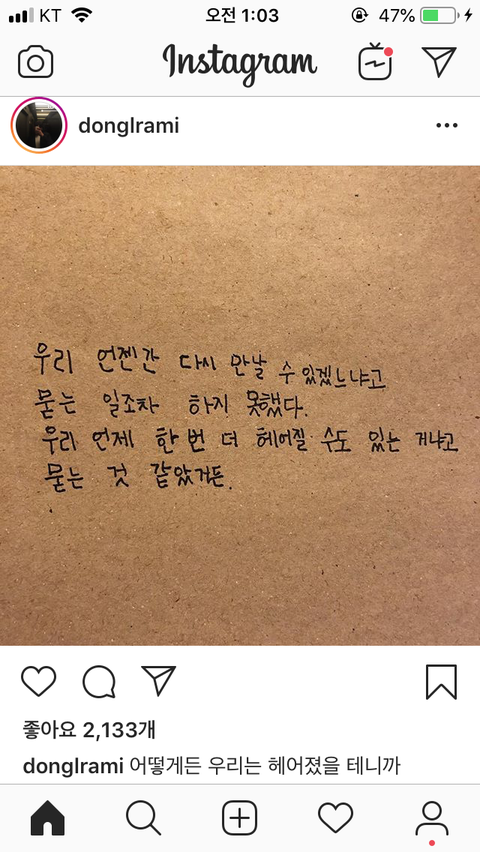 KT 오전 1:03 47%
Instagram
dongIrami
우리 언젠간 다시 만날 수 있겠느냐고
묻는 일조차 하지 못했다.
우리 언제 한 번 더 헤어질 수도 있는 거냐고
묻는 것 같았거든.
좋아요 2,133개
dongIrami 어떻게든 우리는 헤어졌을 테니까